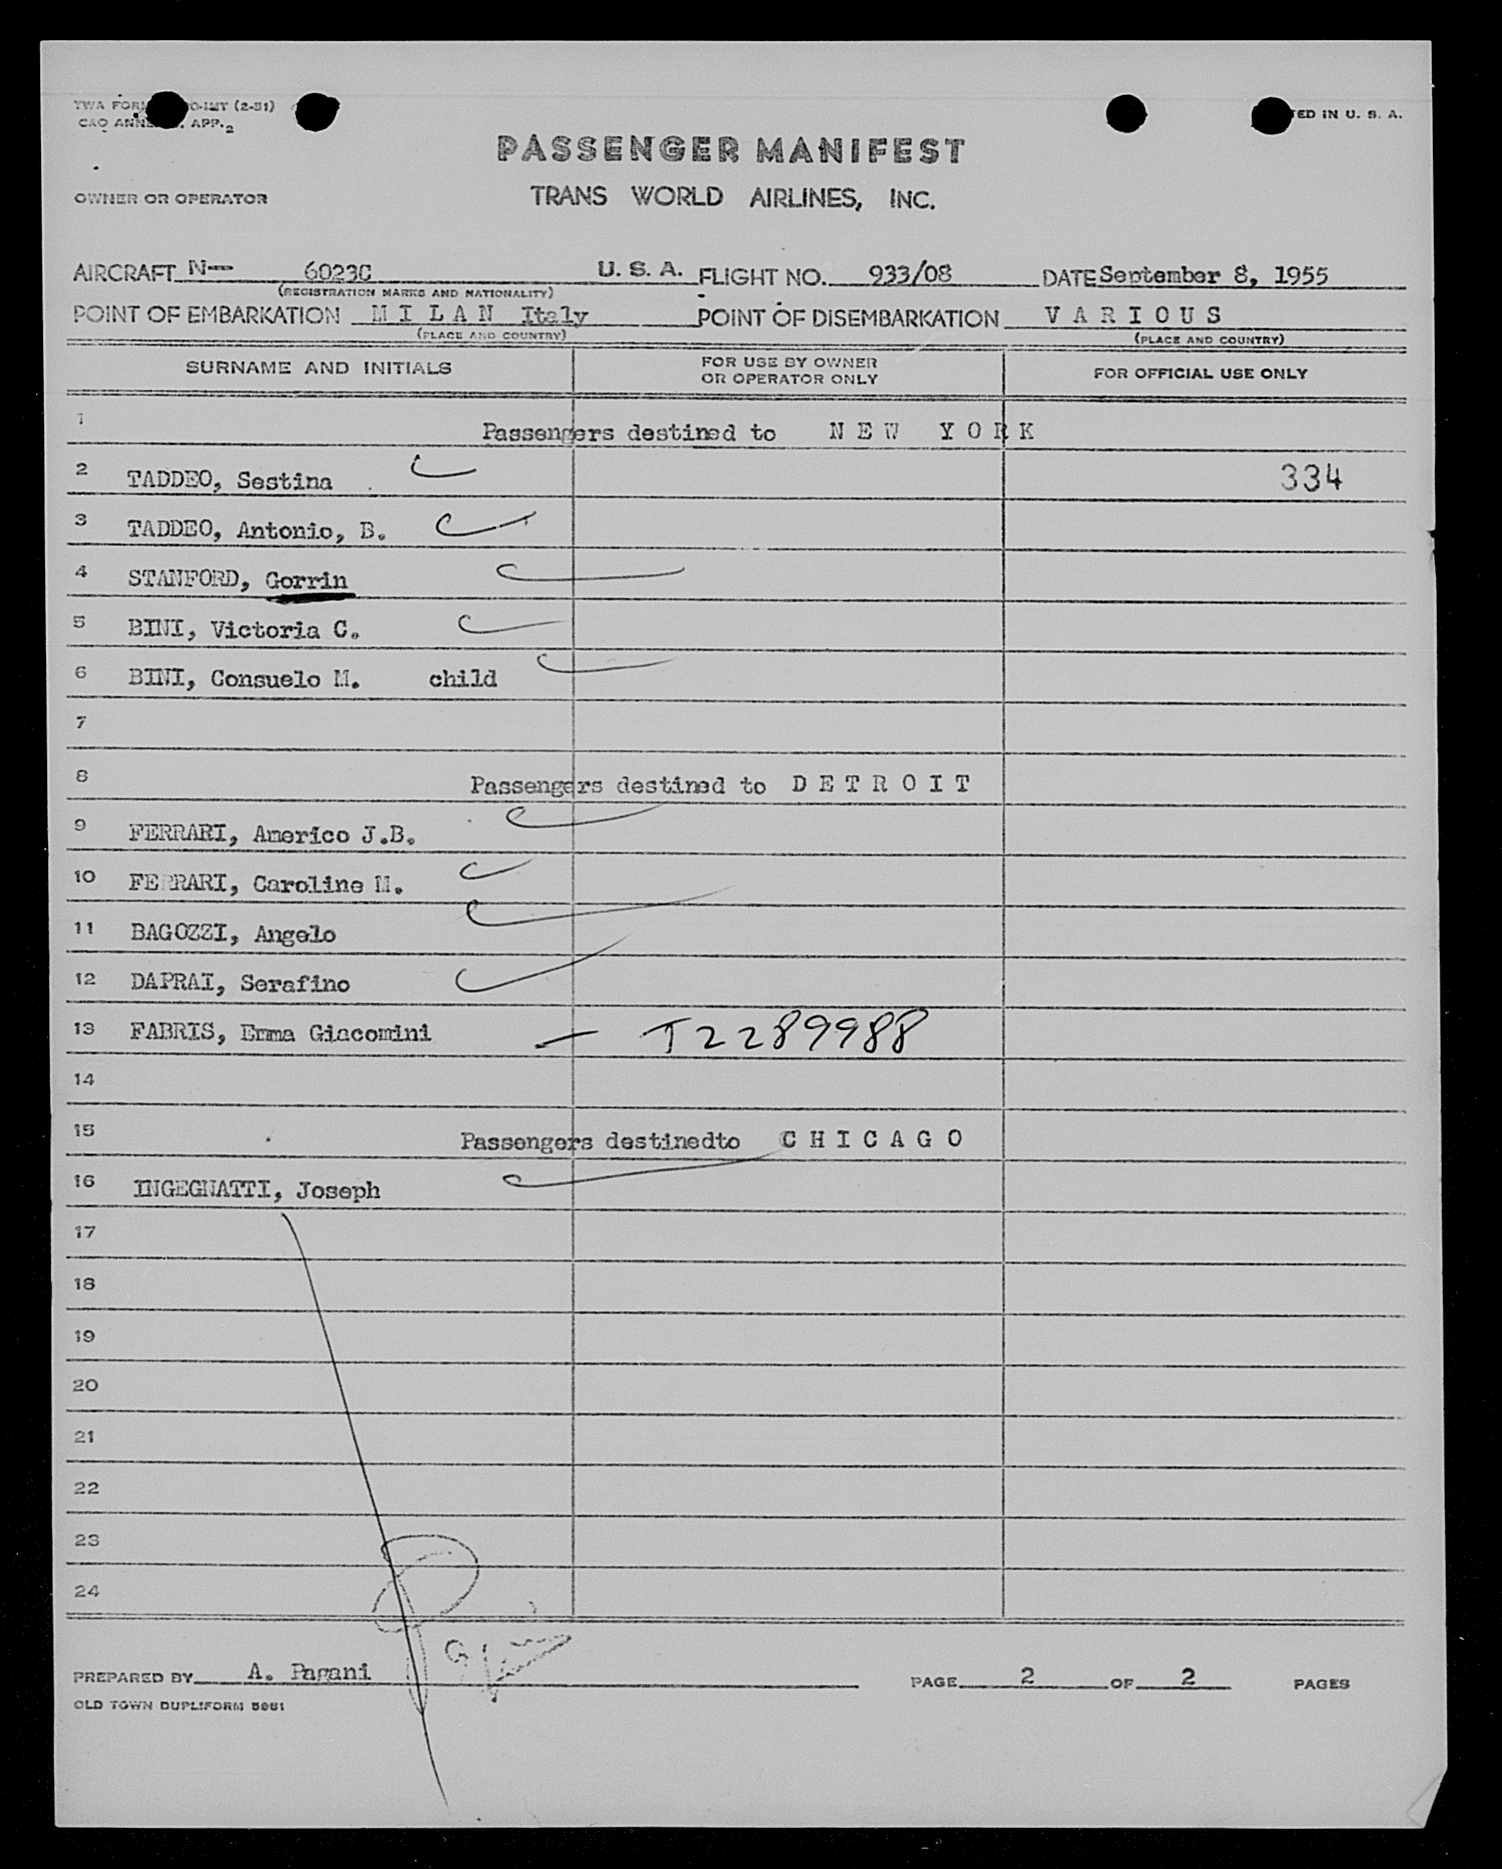 TWA FORM O-INT (2-51)
CAO ANNE APP. 2
TED IN U. S. A.
PASSENGER MANIFEST
OWNER OR OPERATOR
TRANS WORLD AIRLINES, INC.
AIRCRAFT N-- 6023C U. S. A. FLIGHT NO. 933/08 DATE September 8, 1955
(REGISTRATION MARKS AND NATIONALITY)
POINT OF EMBARKATION M I L A N Italy POINT OF DISEMBARKATION V A R I O U S
(PLACE AND COUNTRY) (PLACE AND COUNTRY)
SURNAME AND INITIALS FOR USE BY OWNER OR OPERATOR ONLY FOR OFFICIAL USE ONLY
1 Passengers destined to N E W Y O R K
2 TADDEO, Sestina 334
3 TADDEO, Antonio, B.
4 STANFORD, Gorrin
5 BINI, Victoria C.
6 BINI, Consuelo M. child
7
8 Passengers destined to D E T R O I T
9 FERRARI, Americo J.B.
10 FERRARI, Caroline M.
11 BAGOZZI, Angelo
12 DAPRAI, Serafino
13 FABRIS, Emma Giacomini — T2289988
14
15 Passengers destinedto C H I C A G O
16 INGEGNATTI, Joseph
17
18
19
20
21
22
23
24
PREPARED BY A. Pagani PAGE 2 OF 2 PAGES
OLD TOWN DUPLIFORM 5961